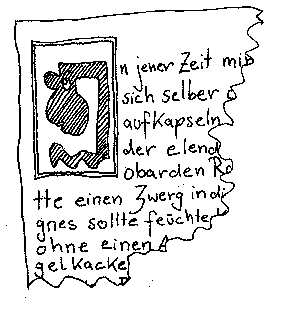 In jener Zeit miß
sich selber
aufKapseln
der elend
obarden Ro
tte einen Zwerg in di
gnes sollte feuchte
ohne einen
gelkacke